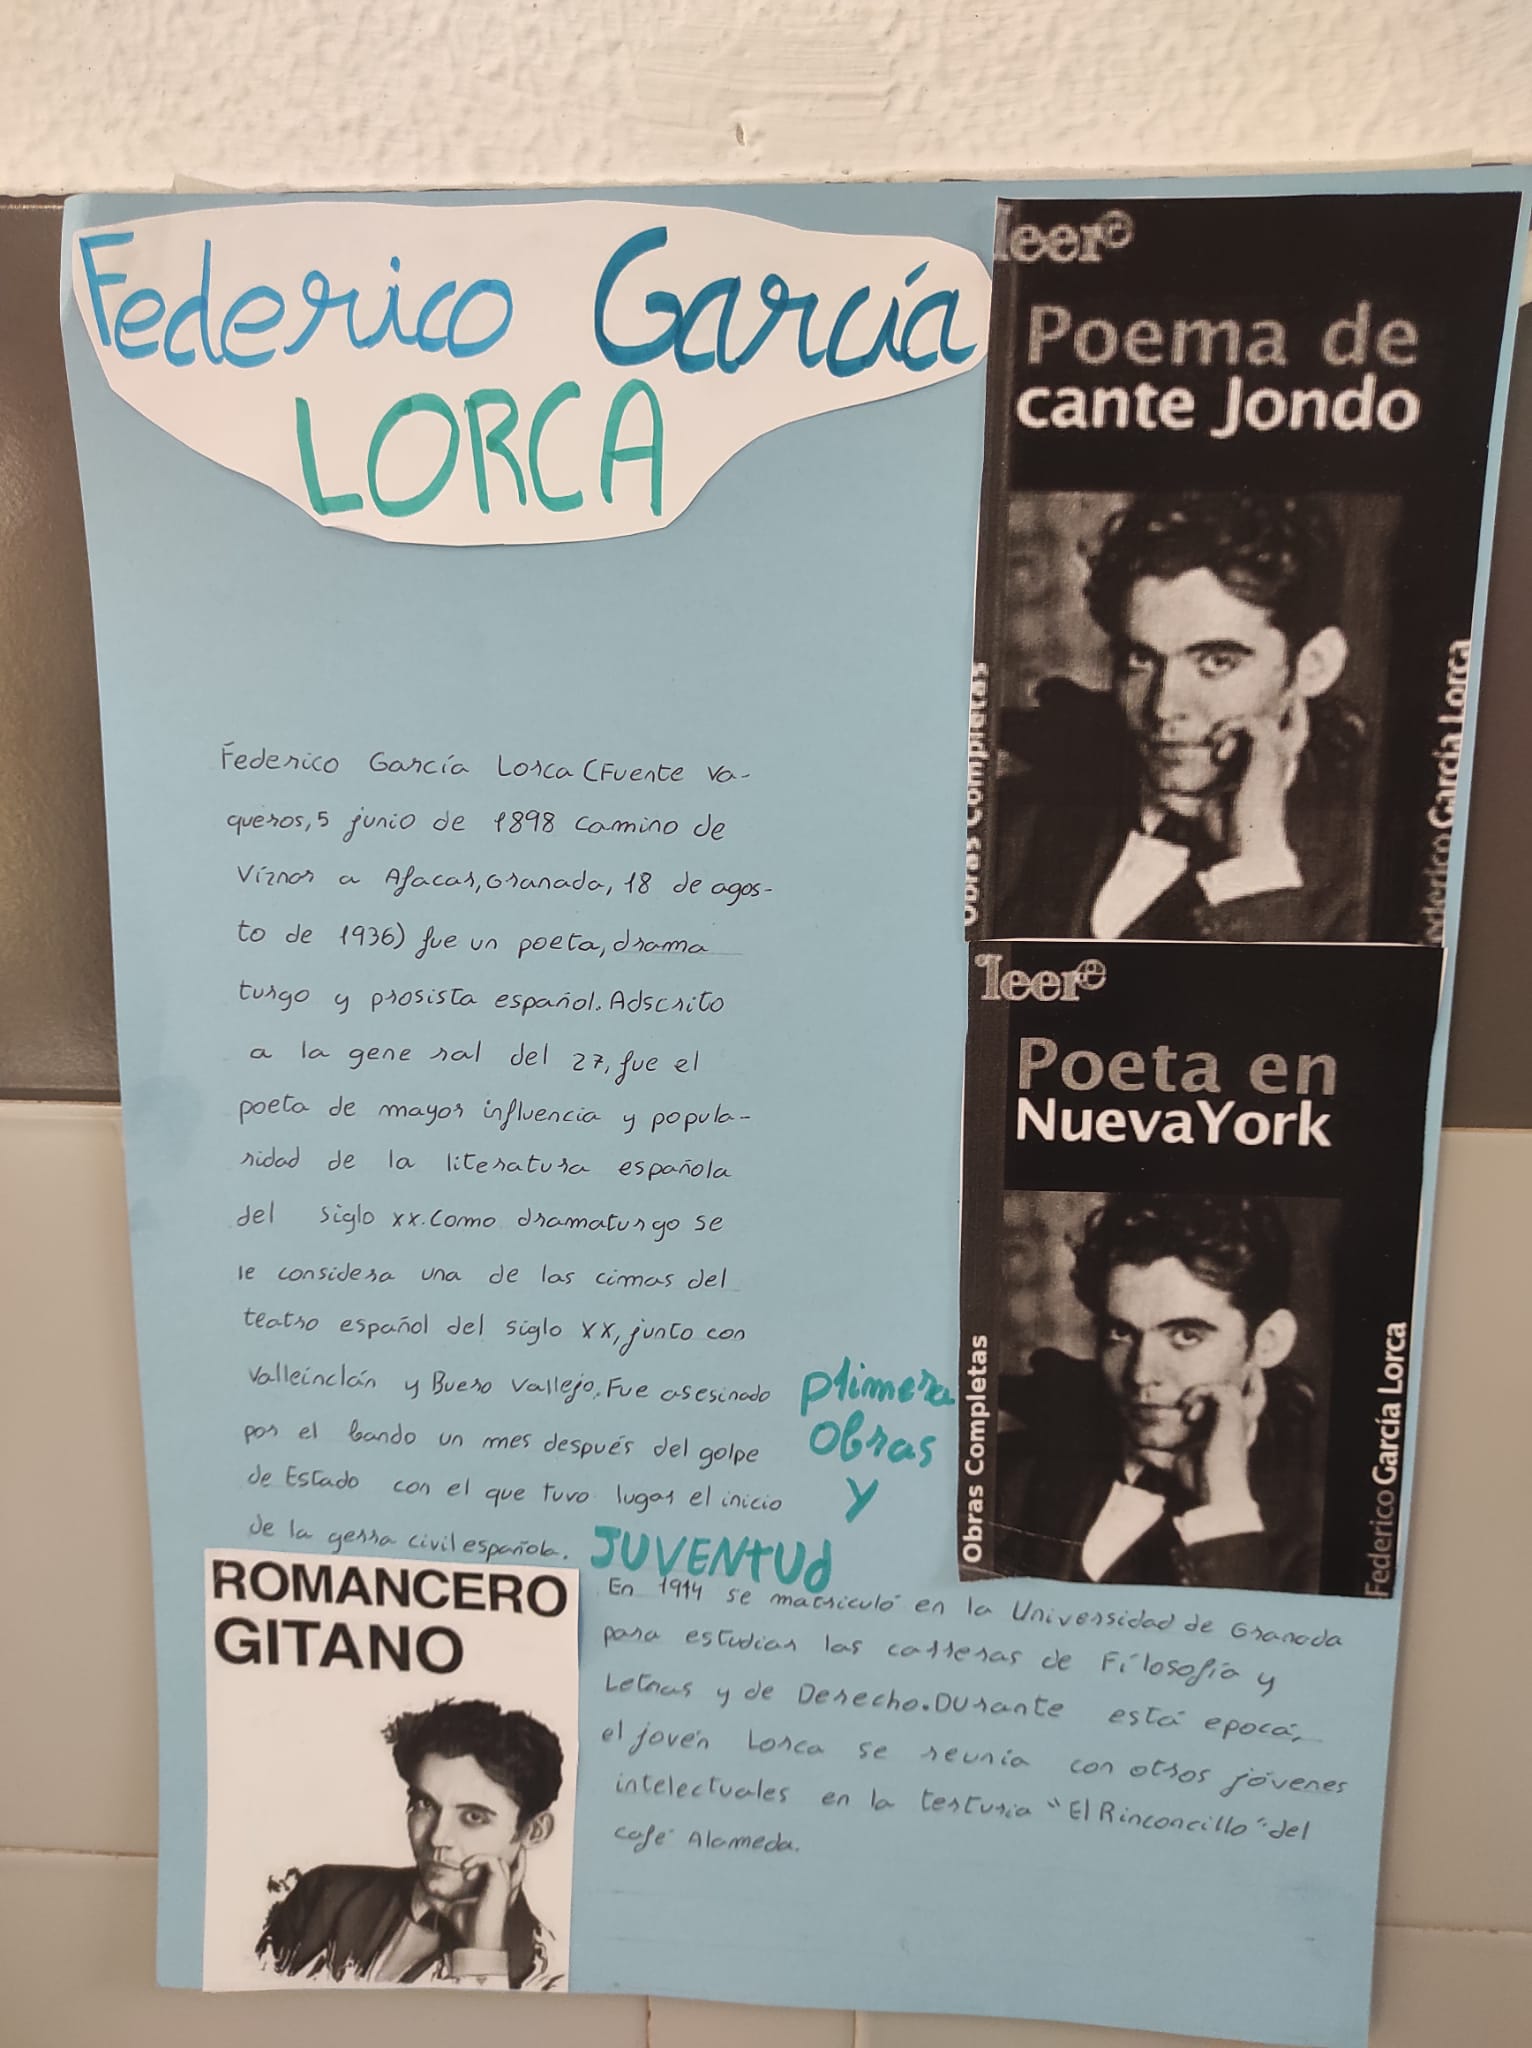 Federico García
LORCA
leer
Poema de
cante Jondo
Obras Completas
Federico García Lorca
Federico García Lorca (Fuente Va-
queros, 5 junio de 1898 camino de
Víznar a Alfacar, Granada, 18 de agos-
to de 1936) fue un poeta, drama
turgo y prosista español. Adscrito
a la gene ral del 27, fue el
poeta de mayor influencia y popula-
ridad de la literatura española
del siglo xx. Como dramaturgo se
le considera una de las cimas del
teatro español del siglo XX, junto con
Valleinclán y Buero Vallejo. Fue asesinado
por el bando un mes después del golpe
de Estado con el que tuvo lugar el inicio
de la gerra civil española.
leer
Poeta en
NuevaYork
Obras Completas
Federico García Lorca
primera
obras
y
JUVENTUd
En 1914 se matriculó en la Universidad de Granada
para estudiar las carreras de Filosofía y
Letras y de Derecho. Durante está epocá,
el jovén Lorca se reunía con otros jóvenes
intelectuales en la terturia "El Rinconcillo" del
café Alameda.
ROMANCERO
GITANO